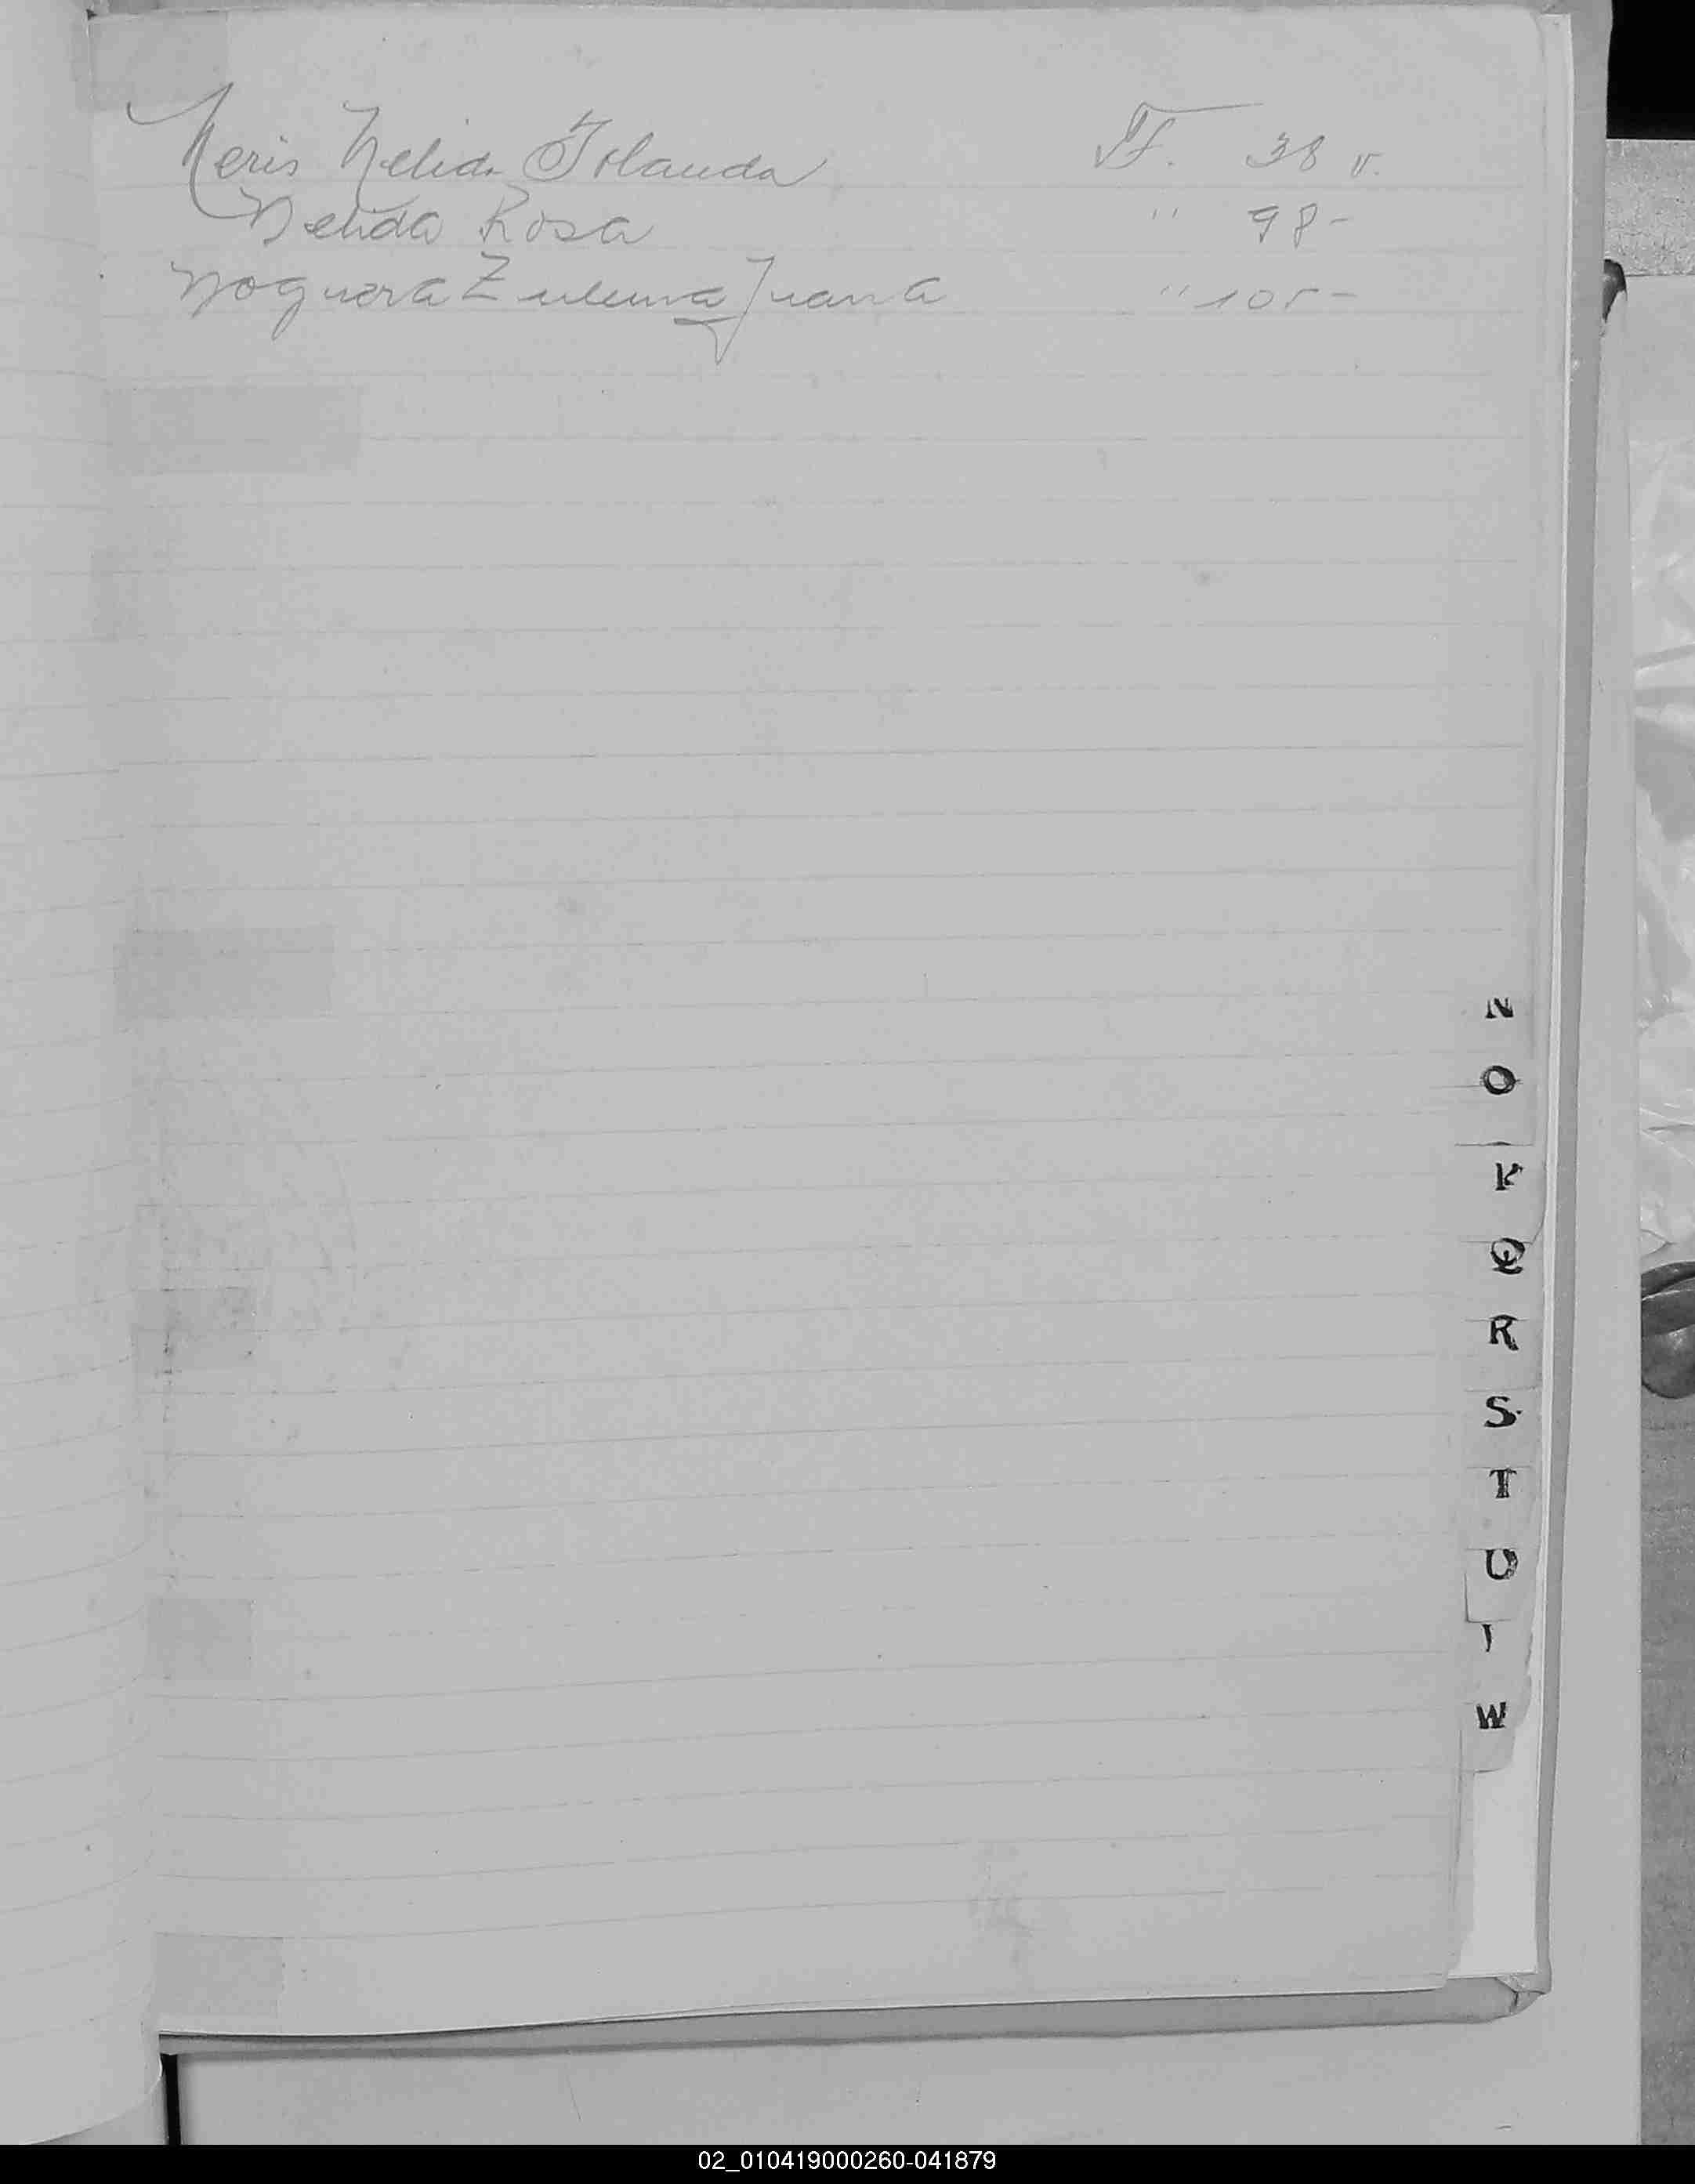 Neris Nelida Iolanda F. 38 v.
Nelida Rosa " 98-
Noguera Zulema Juana " 105-
N
O
P
Q
R
S
T
U
W
02_010419000260-041879